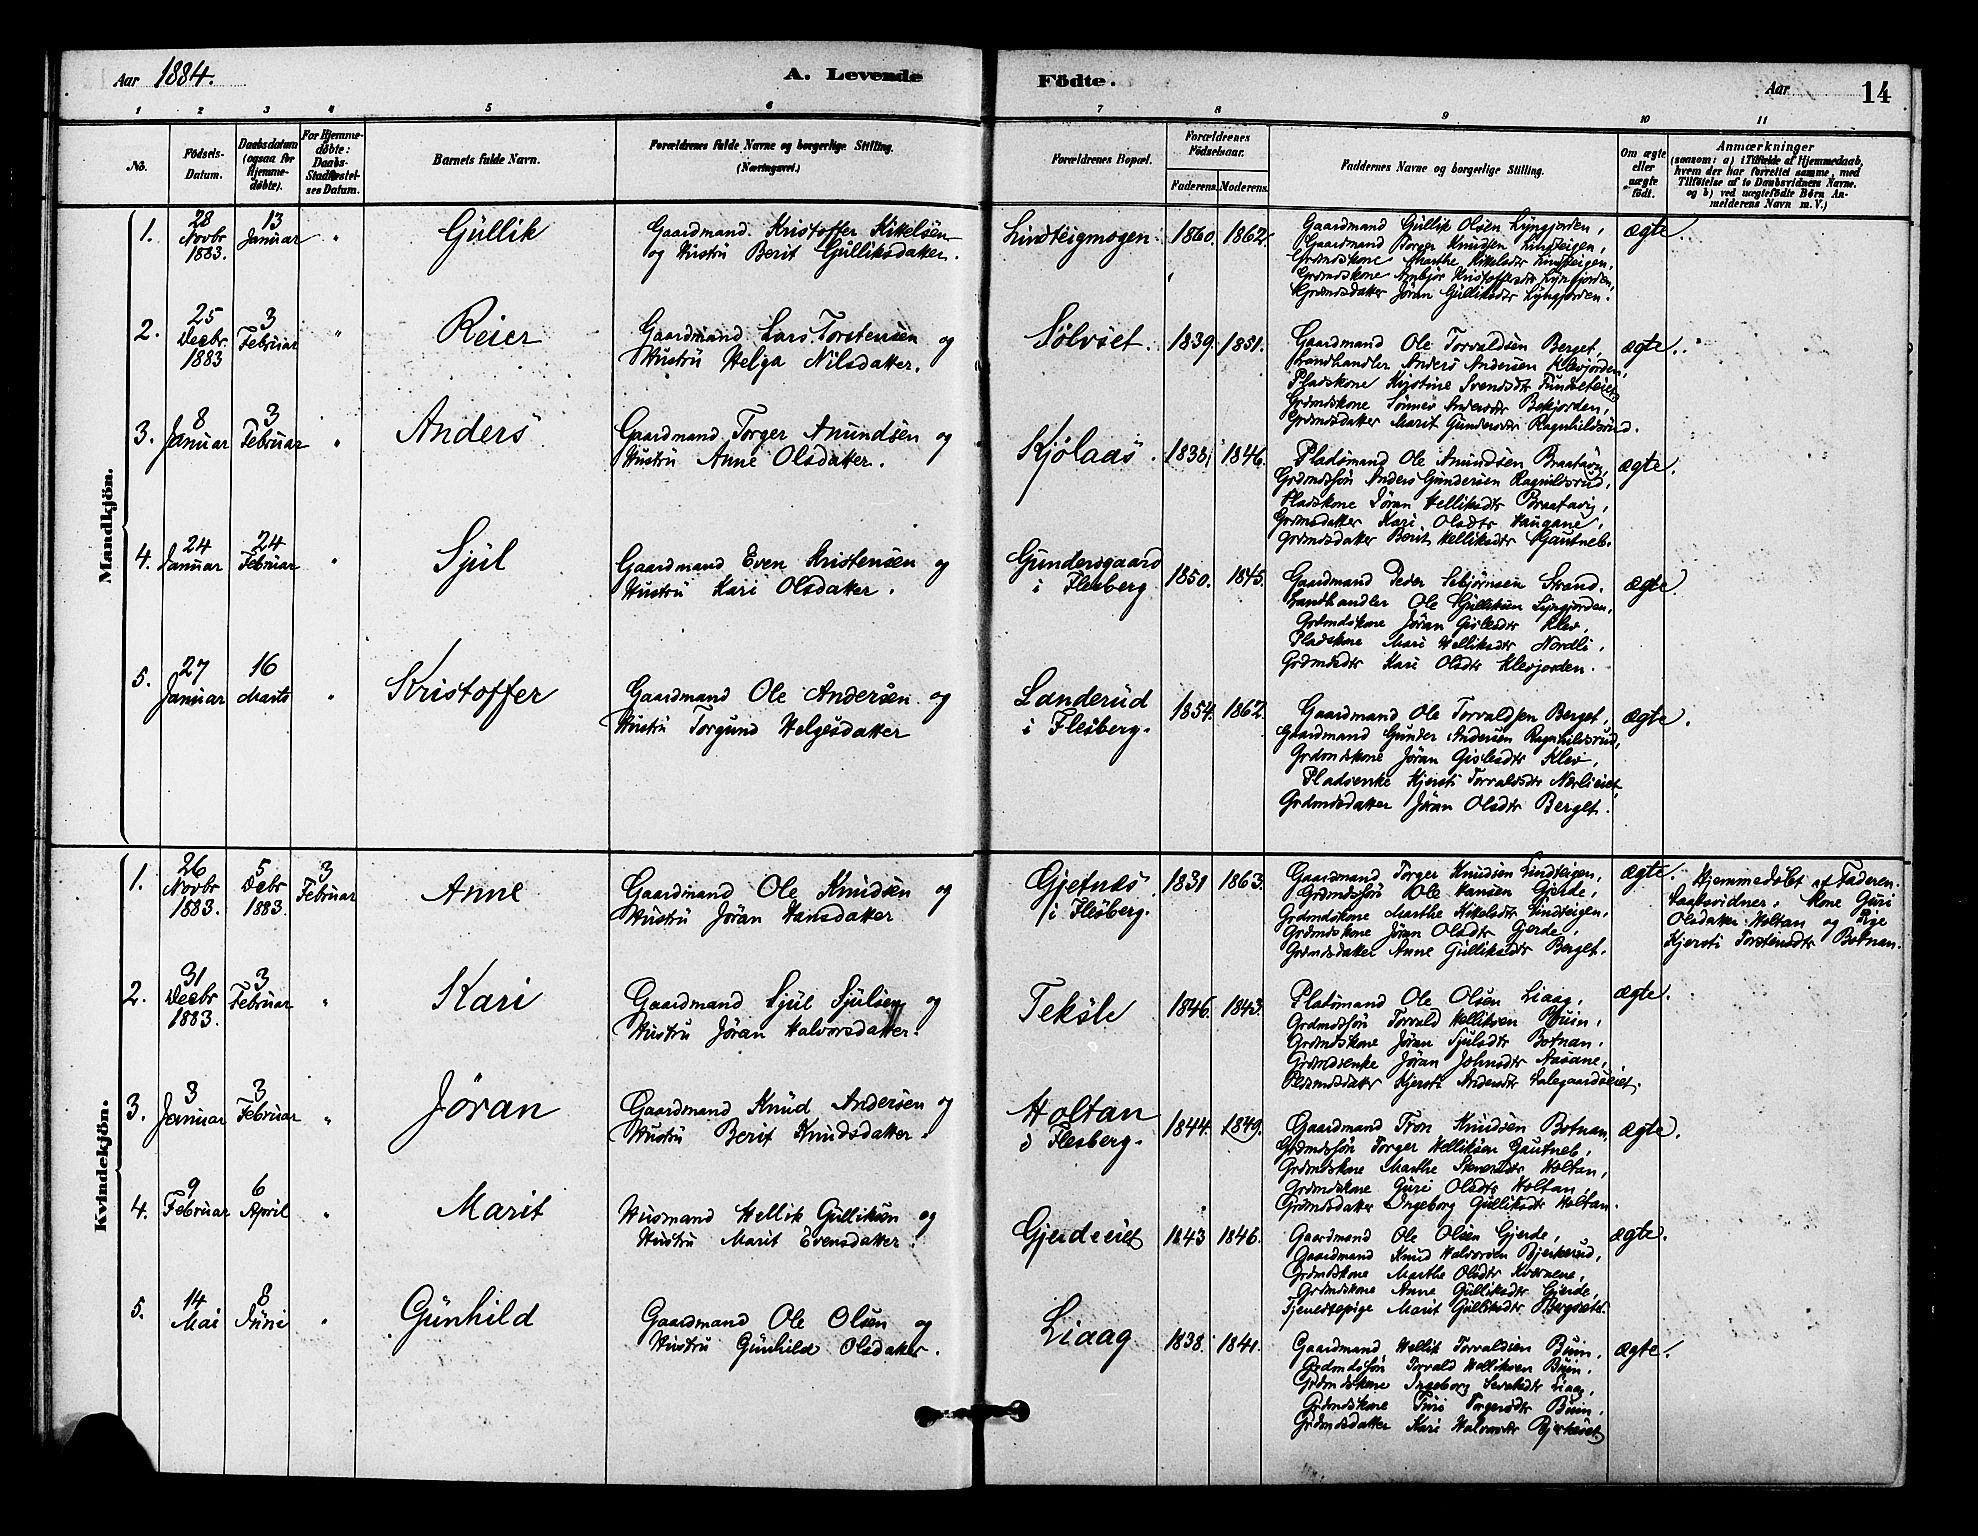 Aar 1884.
A. Levende Födte.
Aar 14
1 2 3 4 5 6 7 8 9 10 11
No.
Födsels-Datum.
Daabsdatum (ogsaa for Hjemme-døbte).
For Hjemme-døbte: Daabs-Stadfæstel-ses Datum.
Barnets fulde Navn.
Forældrenes fulde Navne og borgerlige Stilling.
(Næringsvei.)
Forældrenes Bopæl.
Forældrenes Födselsaar.
Faderens. Moderens.
Faddernes Navne og borgerlige Stilling.
Om ægte eller uægte födt.
Anmærkninger
(saasom: a) i Tilfælde af Hjemmedaab,
hvem der har forrettet samme, med
Tilföielse af to Daabsvidners Navne.
og b) ved uægtefödte Börn An-
melderens Navn m. V.)
Mandkjön.
1. 28 Novbr 1883. 13 Januar " Gullik
Gaardmand Kristoffer Kittelsen
og Hustru Berit Gulliksdatter.
Lindteigmogen. 1860. 1862.
Gaardmand Gullik Olsen Lyngjorden,
Gaardmand Torger Knudsen Lindteigen,
Grdmdskone Marthe Kittelsdtr Lindteigen,
Grdmdskone Ambjør Kristoffersdtr Lyngjorden,
Grdmdsdatter Jöran Gulliksdtr Lyngjorden.
ægte
2. 25 Decbr. 1883 3 Februar " Reier
Gaardmand Lars Torstensen og
Hustru Helga Nilsdatter.
Sölvset. 1839. 1851.
Gaardmand Ole Torvaldsen Berget,
Landhandler Anders Andersen Klevjorden,
Pladskone Kjrstine Svendsdtr
Grdmdskone Sönnev Andersdtr Bekjorden,
Grdmdsdatter Marit Gundersdtr Ragnhildsrud.
ægte.
3. 8 Januar 3 Februar " Anders
Gaardmand Torger Anundsen og
Hustru Anne Olsdatter.
Kjölaas. 1838. 1846.
Pladsmand Ole Anundsen
Grdmdssön Anders Gundersen Ragnhildsrud,
Pladskone Jöran Helliksdtr Braatavig,
Grdmdsdatter Kari Olsdtr Haugane,
Grdmdsdatter Berit Helliksdtr Gjautneb.
ægte.
4. 24 Januar 24 Februar " Sjul
Gaardmand Even Kristensen og
Hustru Kari Olsdatter.
Gundersgaard
i Flesberg 1850. 1845.
Gaardmand Peder Sebjörnsen Strand.
Landhandler Ole Gulliksen Lyngjorden,
Grdmdskone Jöran Gislesdtr Klev,
Pladskone Mari Helliksdtr Nordli,
Grdmdsdtr Kari Olsdtr Klevjorden.
ægte.
5. 27 Januar 16 Marts " Kristoffer
Gaardmand Ole Andersen og
Hustru Torgund Helgesdatter
Landerud
i Flesberg. 1854. 1862.
Gaardmand Ole Torvaldsen Berget,
Gaardmand Gunder Andersen Ragnhildsrud,
Grdmdskone Jöran Gislesdtr Klev,
Pladsenke Kjersti Torvaldsdtr Nörlieiet,
Grdmdsdatter Jöran Olsdtr Berget.
ægte.
Kvindekjön.
1. 26 Novbr 1883. 5 Debr 1883. 3 Februar Anne
Gaardmand Ole Knudsen og
Hustru Jöran Hansdatter
Gjetnæs
i Flesberg. 1831 1863.
Gaardmand Torger Knudsen Lindteigen,
Grdmdssön Ole Hansen Gjerde,
Grdmdskone Marthe Kittelsdtr Lindteigen,
Grdmdskone Jöran Olsdtr Gjerde,
Grdmdsdatter Anne Gulliksdtr Berget.
ægte.
Hjemmedøbt af Faderen.
Daabsvidner: Kone Guri
Olsdatter Holtan og Pige
Kjersti Torstensdtr Botnan.
2. 31 Decbr 1883. 3 Februar " Kari
Gaardmand Sjul Sjulsen og
Hustru Jöran Halvorsdatter.
Teksle 1846. 1843.
Pladsmand Ole Olsen Liaag,
Grdmdssön Torvald Helliksen Buin,
Grdmdskone Jöran Sjulsdtr Botnan.
Grdmdsenke Jöran Johnsdtr Aasane,
Pladsmdsdatter Kjersti Andersdtr Dalegaardseiet.
ægte.
3. 3 Januar 3 Februar " Jöran
Gaardmand Knud Andersen og
Hustru Berit Knudsdatter.
Holtan
i Flesberg. 1844. 1849.
Gaardmand Tron Knudsen Botnan,
Grdmdssön Torger Helliksen Gautneb,
Grdmdskone Marthe Holtan,
Grdmdskone Guri Olsdtr Holtan,
Grdmdsdatter Ingeborg Gulliksdtr Holtan.
ægte.
4. 9 Februar 6 April " Marit
Husmand Hellik Gulliksen og
Hustru Marit Evensdatter.
Gjerdeeiet 1843 1846.
Gaardmand Ole Olsen Gjerde,
Gaardmand Knud Halvorsen Bjerkerud,
Grdmdskone Marthe Olsdtr Kværnene,
Grdmdskone Anne Gulliksdtr Gjerde,
Tjenestepige Marit Gulliksdtr Bergsetet.
ægte.
5. 14 Mai 8 Juni " Gunhild
Gaardmand Ole Olsen og
Hustru Gunhild Olsdatter.
Liaag 1838. 1841.
Gaardmand Hellik Torvaldsen Buin,
Grdmdssön Torvald Helliksen Buin,
Grdmdskone Ingeborg Liaag,
Grdmdskone Turi Torgersdtr Buin,
Grdmdsdatter Kari Halvorsdtr
ægte.